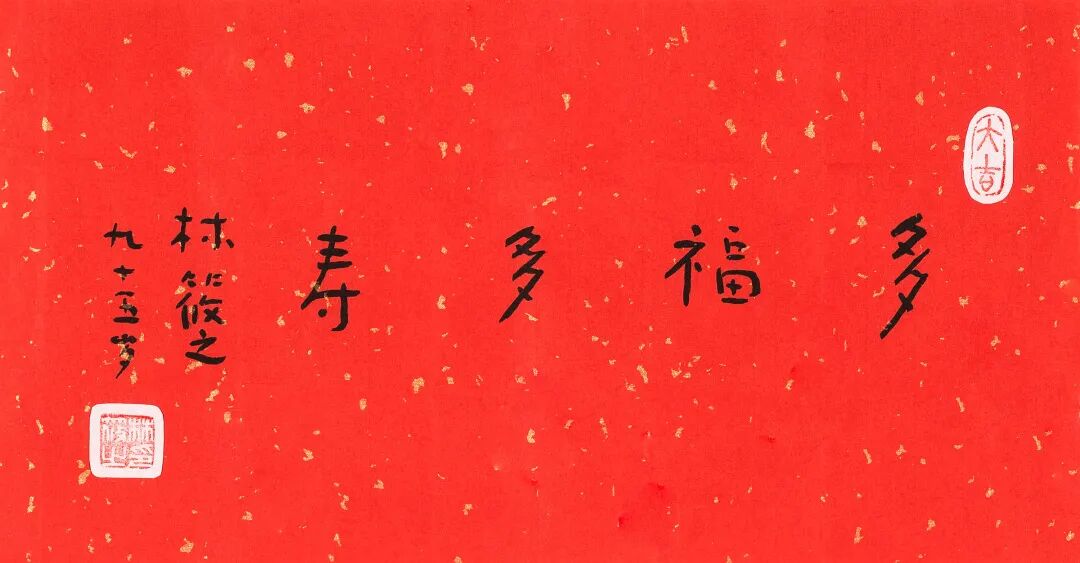 大吉
多福多寿
林筱之
九十五岁